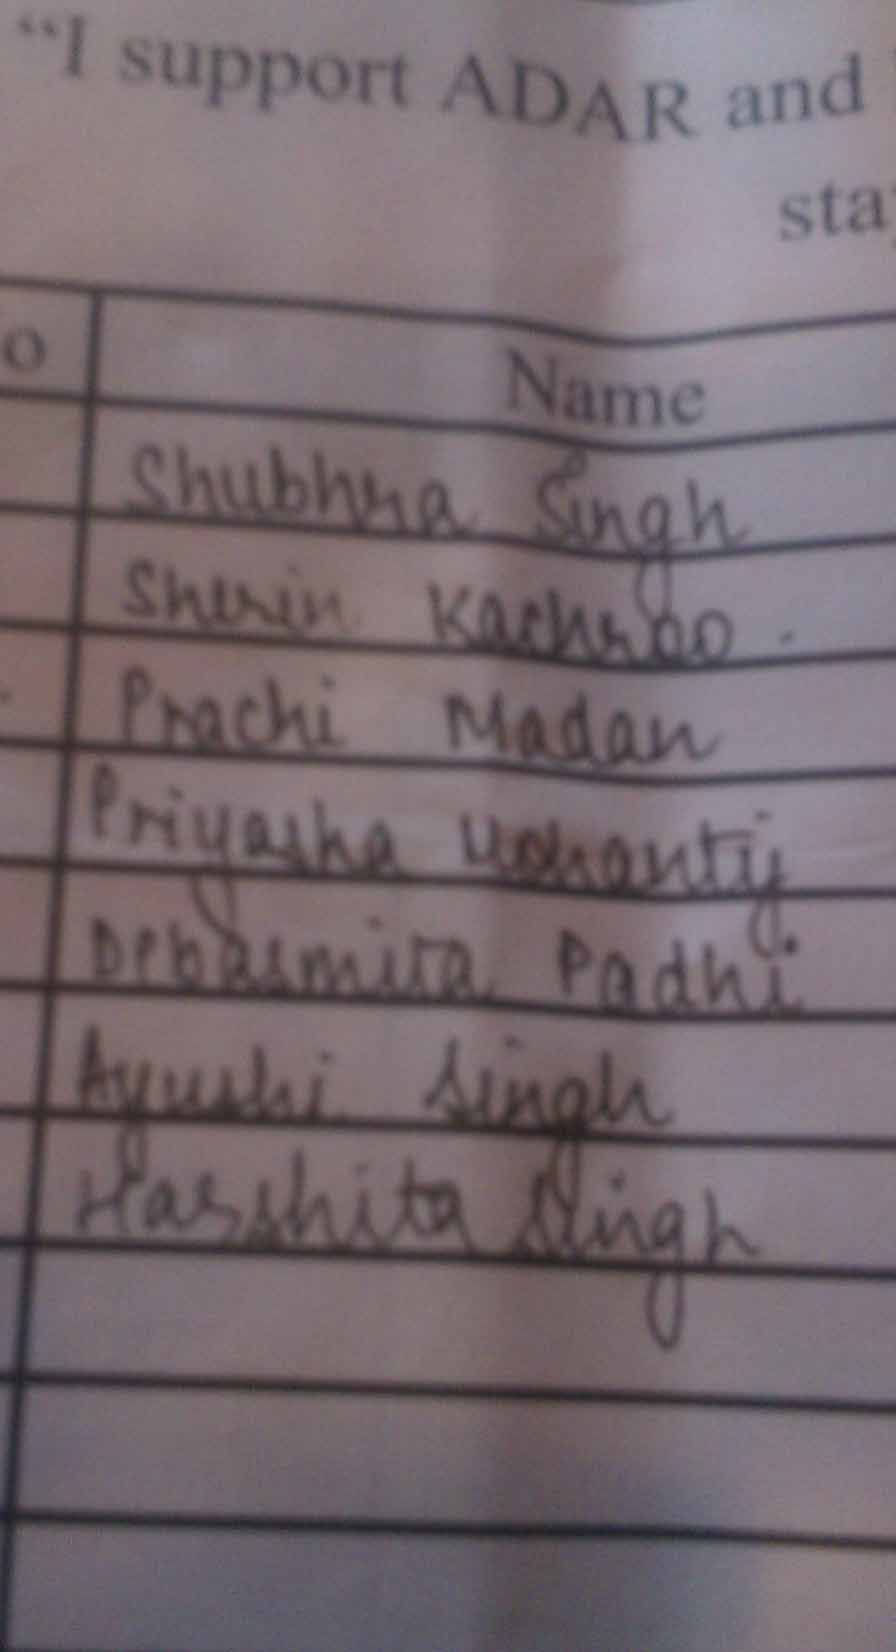 "I support ADAR and
sta
o
Name
Shubhra Singh
Sherin Kachroo.
Prachi Madan
Priyasha Mohanty
Debasmita Padhi
Ayushi Singh
Harshita Singh